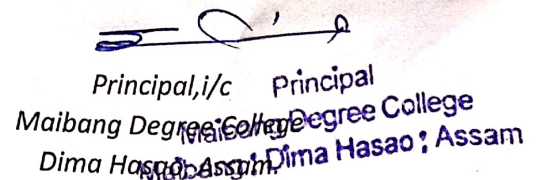 Principal,i/c
Maibang Degree College
Dima Hasao, Assam.
Principal
Maibang Degree College
Maibang, Dima Hasao, Assam